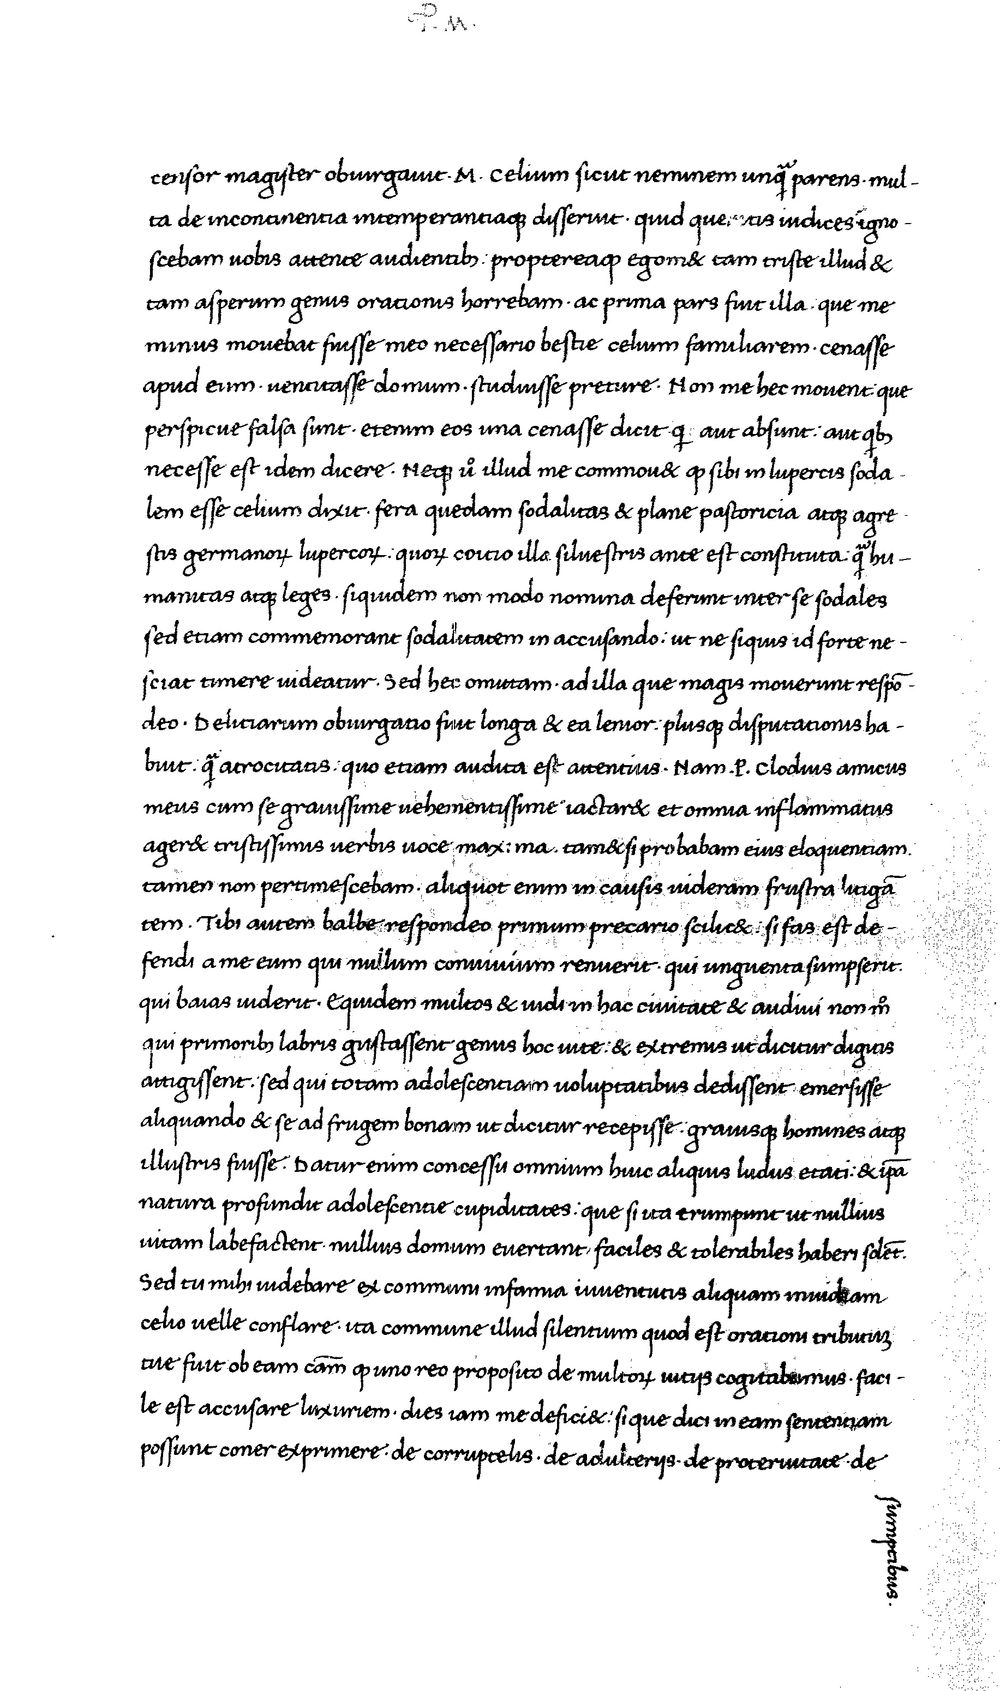 P. M.
censor magister obiurgauit. M. Celium sicut neminem unꝗ̃ parens. mul-
ta de incontinentia intemperantiaqꝫ disseruit. quid iudices igno-
scebam uobis attente audientibꝫ: proptereaqꝫ egom& tam triste illud &
tam asperum genus orationis horrebam. ac prima pars fuit illa: que me
minus mouebat fuisse meo necessario bestie celium familiarem. cenasse
apud eum. uentitasse domum. studuisse preture. Non me hec mouent: que
perspicue falsa sunt. etenim eos una cenasse dicit ꝗ: aut absunt: aut ꝗbꝫ
necesse est idem dicere. Neqꝫ ů illud me commou& ꝙ sibi in lupercis soda-
lem esse celium dixit. fera quedam sodalitas & plane pastoricia atqꝫ agre-
stis germanoꝝ lupercoꝝ: quoꝝ coitio illa siluestris ante est constituta: ꝗ̃ hu-
manitas atqꝫ leges. siquidem non modo nomina deferunt inter se sodales
sed etiam commemorant sodalitatem in accusando: ut ne siquis id forte ne-
sciat timere uideatur. Sed hec omittam. ad illa que magis mouerunt respō-
deo. Deliciarum obiurgatio fuit longa & ea lenior: plusqꝫ disputationis ha-
buit: ꝗ̃ atrocitatis: quo etiam audita est attentius. Nam .P. Clodius amicus
meus cum se grauissime uehementissime iactar& et omnia inflammatus
ager& tristissimis uerbis uoce max: ma. tam&si probabam eius eloquentiam.
tamen non pertimescebam. aliquot enim in causis uideram frustra litigā
tem. Tibi autem balbe respondeo primum precario scilic&: si fas est de-
fendi a me eum qui nullum conuiuium renuerit. qui unguenta sumpserit.
qui baias uiderit. Equidem multos & uidi in hac ciuitate & audiui non m̊
qui primoribꝫ labris gustassent genus hoc uite: & extremis ut dicitur digitis
attigissent. sed qui totam adolescentiam uoluptatibus dedissent emersisse
aliquando & se ad frugem bonam ut dicitur recepisse: grauisqꝫ homines atqꝫ
illustris fuisse. Datur enim concessu omnium huic aliquis ludus etati: & ip̄a
natura profundit adolescentie cupiditates: que si ita erumpunt ut nullius
uitam labefactent. nullius domum euertant, faciles & tolerabiles haberi solēt.
Sed tu mihi uidebare ex communi infamia iuuentutis aliquam inuidiam
celio uelle conflare. ita commune illud silentium quod est orationi tributuꝫ
tue fuit ob eam cām ꝙ uno reo proposito de multoꝝ uitijs cogitabamus. faci-
le est accusare luxuriem. dies iam me defici&: si que dici in eam sententiam
possunt coner exprimere. de corruptelis. de adulterijs. de proteruitate. de
sumptibus.